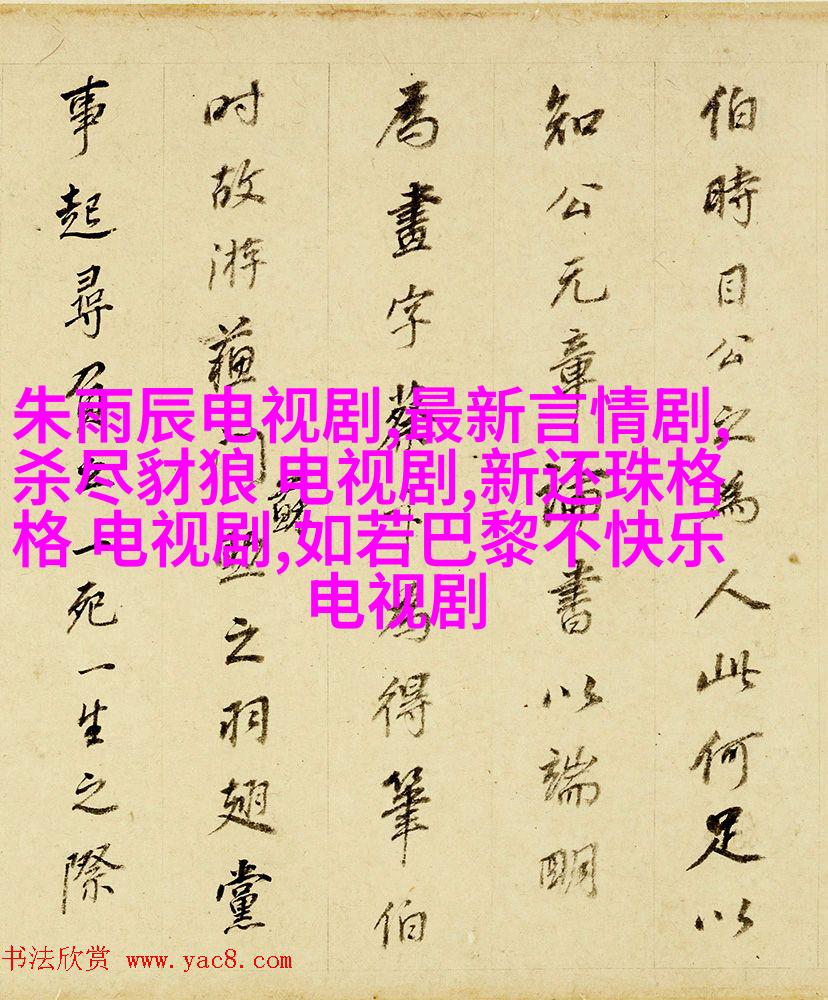 伯時目公之為人此何足以
知公元章論書以端明
為畫字蔡為得筆伯
时故游蘓門之羽翅黨
蘇
事起尋一死一生之際
朱雨辰电视剧,最新言情剧,
杀尽豺狼 电视剧,新还珠格
格 电视剧,如若巴黎不快乐
电视剧
书法欣赏 www.yac8.com